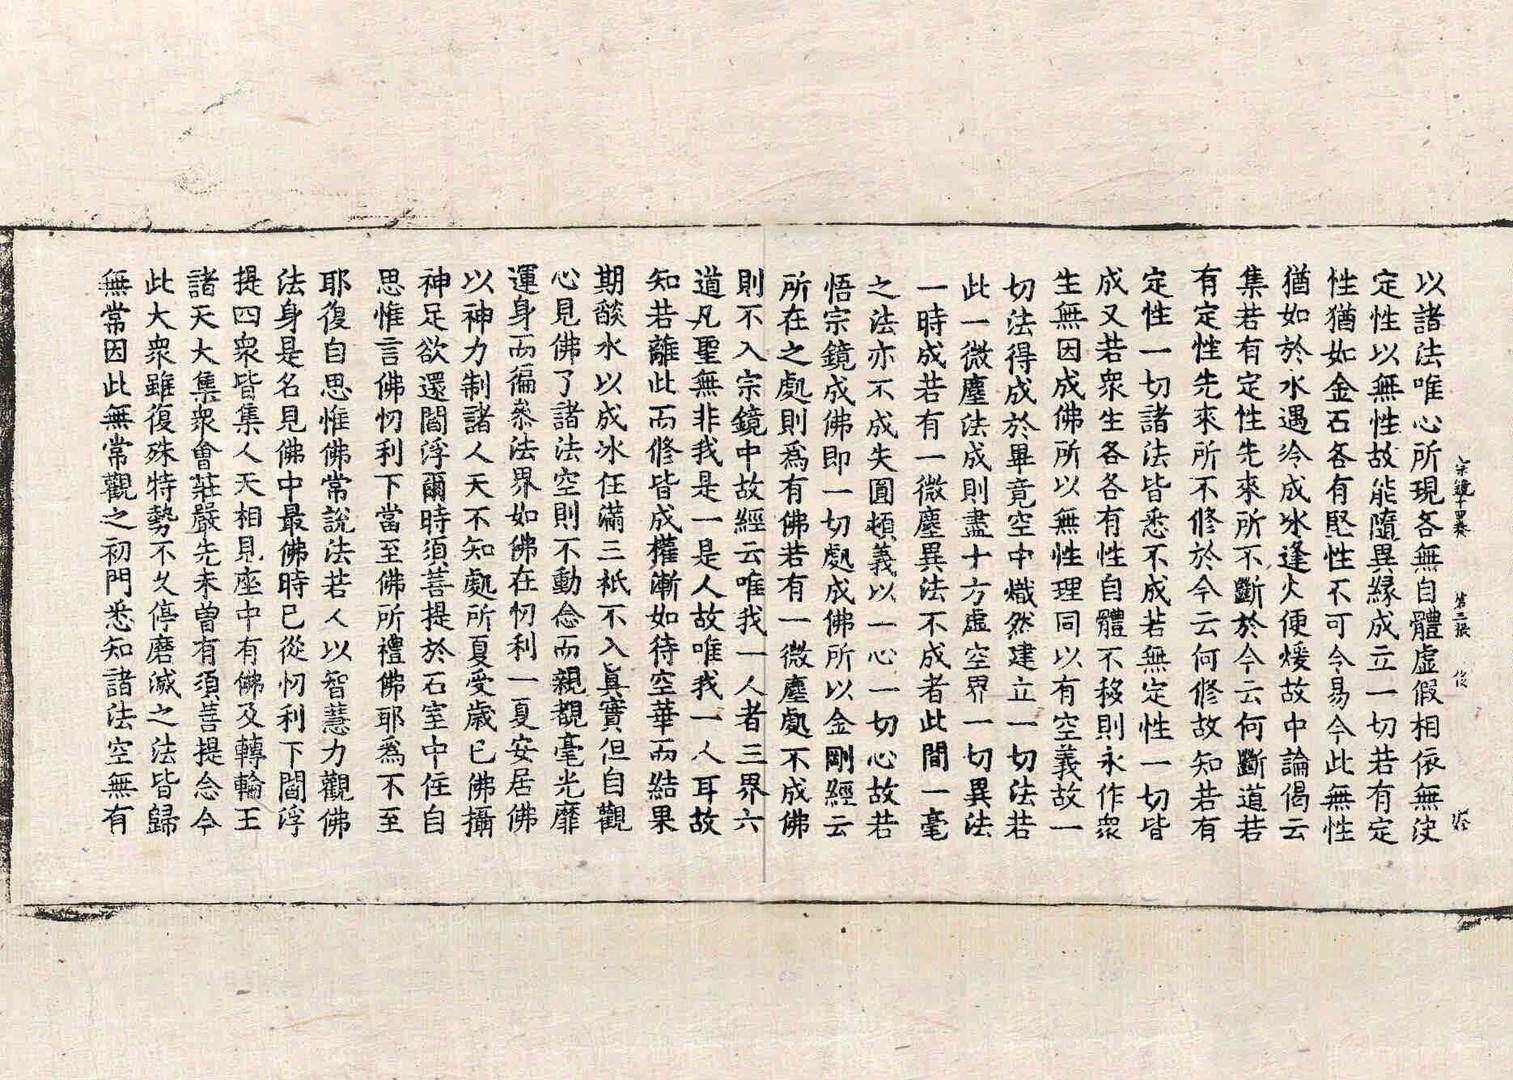 宗鏡十四卷 第三張 俊
以諸法唯心所現各無自體虛假相依無決
定性以無性故能隨異緣成立一切若有定
性猶如金石各有堅性不可令易今此無性
猶如於水遇冷成冰逢火便煖故中論偈云
集若有定性先來所不斷於今云何斷道若
有定性先來所不修於今云何修故知若有
定性一切諸法皆悉不成若無定性一切皆
成又若衆生各各有性自體不移則永作衆
生無因成佛所以無性理同以有空義故一
切法得成於畢竟空中熾然建立一切法若
此一微塵法成則盡十方虛空界一切異法
一時成若有一微塵異法不成者此間一毫
之法亦不成失圓頓義以一心一切心故若
悟宗鏡成佛即一切處成佛所以金剛經云
所在之處則爲有佛若有一微塵處不成佛
則不入宗鏡中故經云唯我一人者三界六
道凡聖無非我是一是人故唯我一人耳故
知若離此而修皆成權漸如待空華而結果
期燄水以成冰任滿三祇不入眞實但自觀
心見佛了諸法空則不動念而親覩毫光靡
運身而徧叅法界如佛在忉利一夏安居佛
以神力制諸人天不知處所夏受歲已佛攝
神足欲還閻浮爾時須菩提於石室中住自
思惟言佛忉利下當至佛所禮佛耶爲不至
耶復自思惟佛常說法若人以智慧力觀佛
法身是名見佛中最佛時已從忉利下閻浮
提四衆皆集人天相見座中有佛及轉輪王
諸天大集衆會莊嚴先未曾有須菩提念今
此大衆雖復殊特勢不久停磨滅之法皆歸
無常因此無常觀之初門悉知諸法空無有